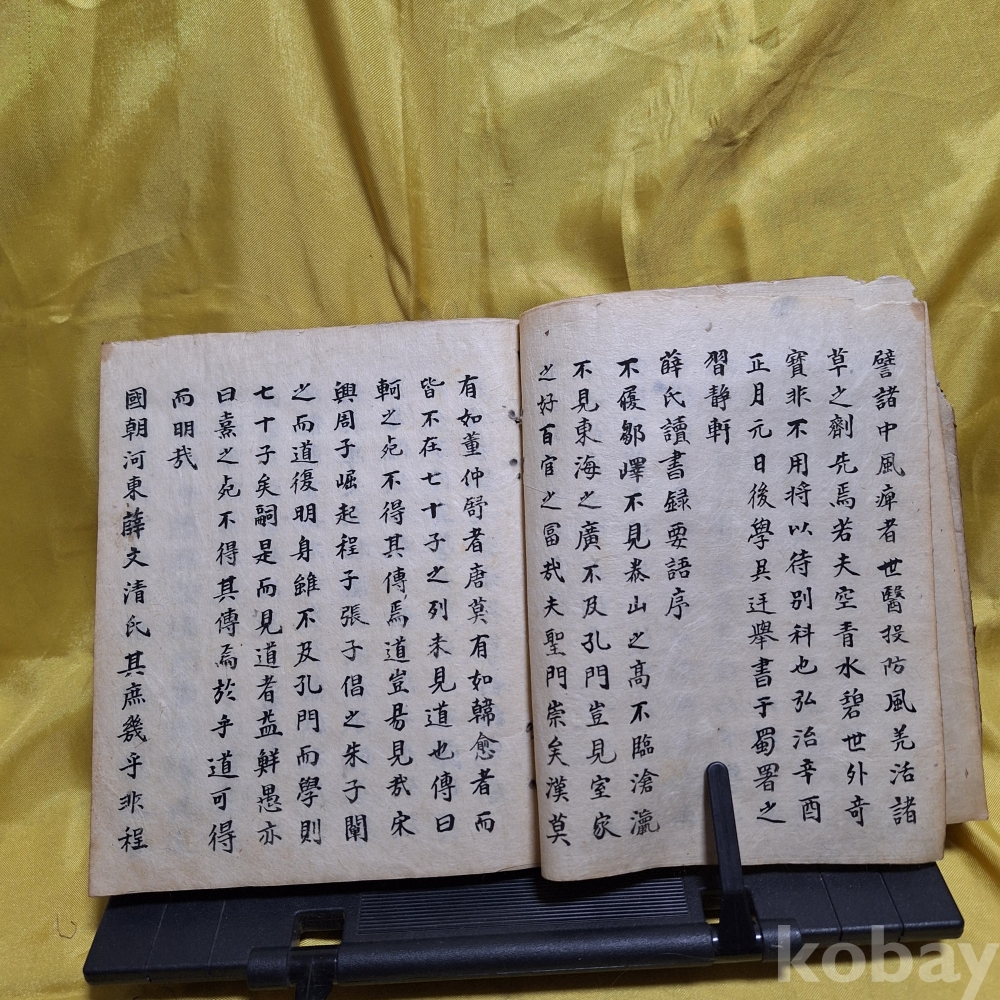 譬諸中風痺者世醫投防風羌活諸
草之劑先焉若夫空青水碧世外奇
寶非不用將以待別科也弘治辛酉
正月元日後學具迂舉書于蜀署之
習静軒
薛氏讀書録要語序
不履鄒嶧不見泰山之髙不臨滄瀛
不見東海之廣不及孔門豈見室家
之好百官之冨㢤夫聖門崇矣漢莫
有如董仲舒者唐莫有如韓愈者而
皆不在七十子之列未見道也傳曰
軻之死不得其傳焉道豈昜見㢤宋
興周子崛起程子張子倡之朱子闡
之而道復明身雖不及孔門而學則
七十子矣嗣是而見道者益鮮愚亦
曰熹之死不得其傳焉於乎道可得
而明㢤
國朝河東薛文清氏其庶幾乎非程
kobay